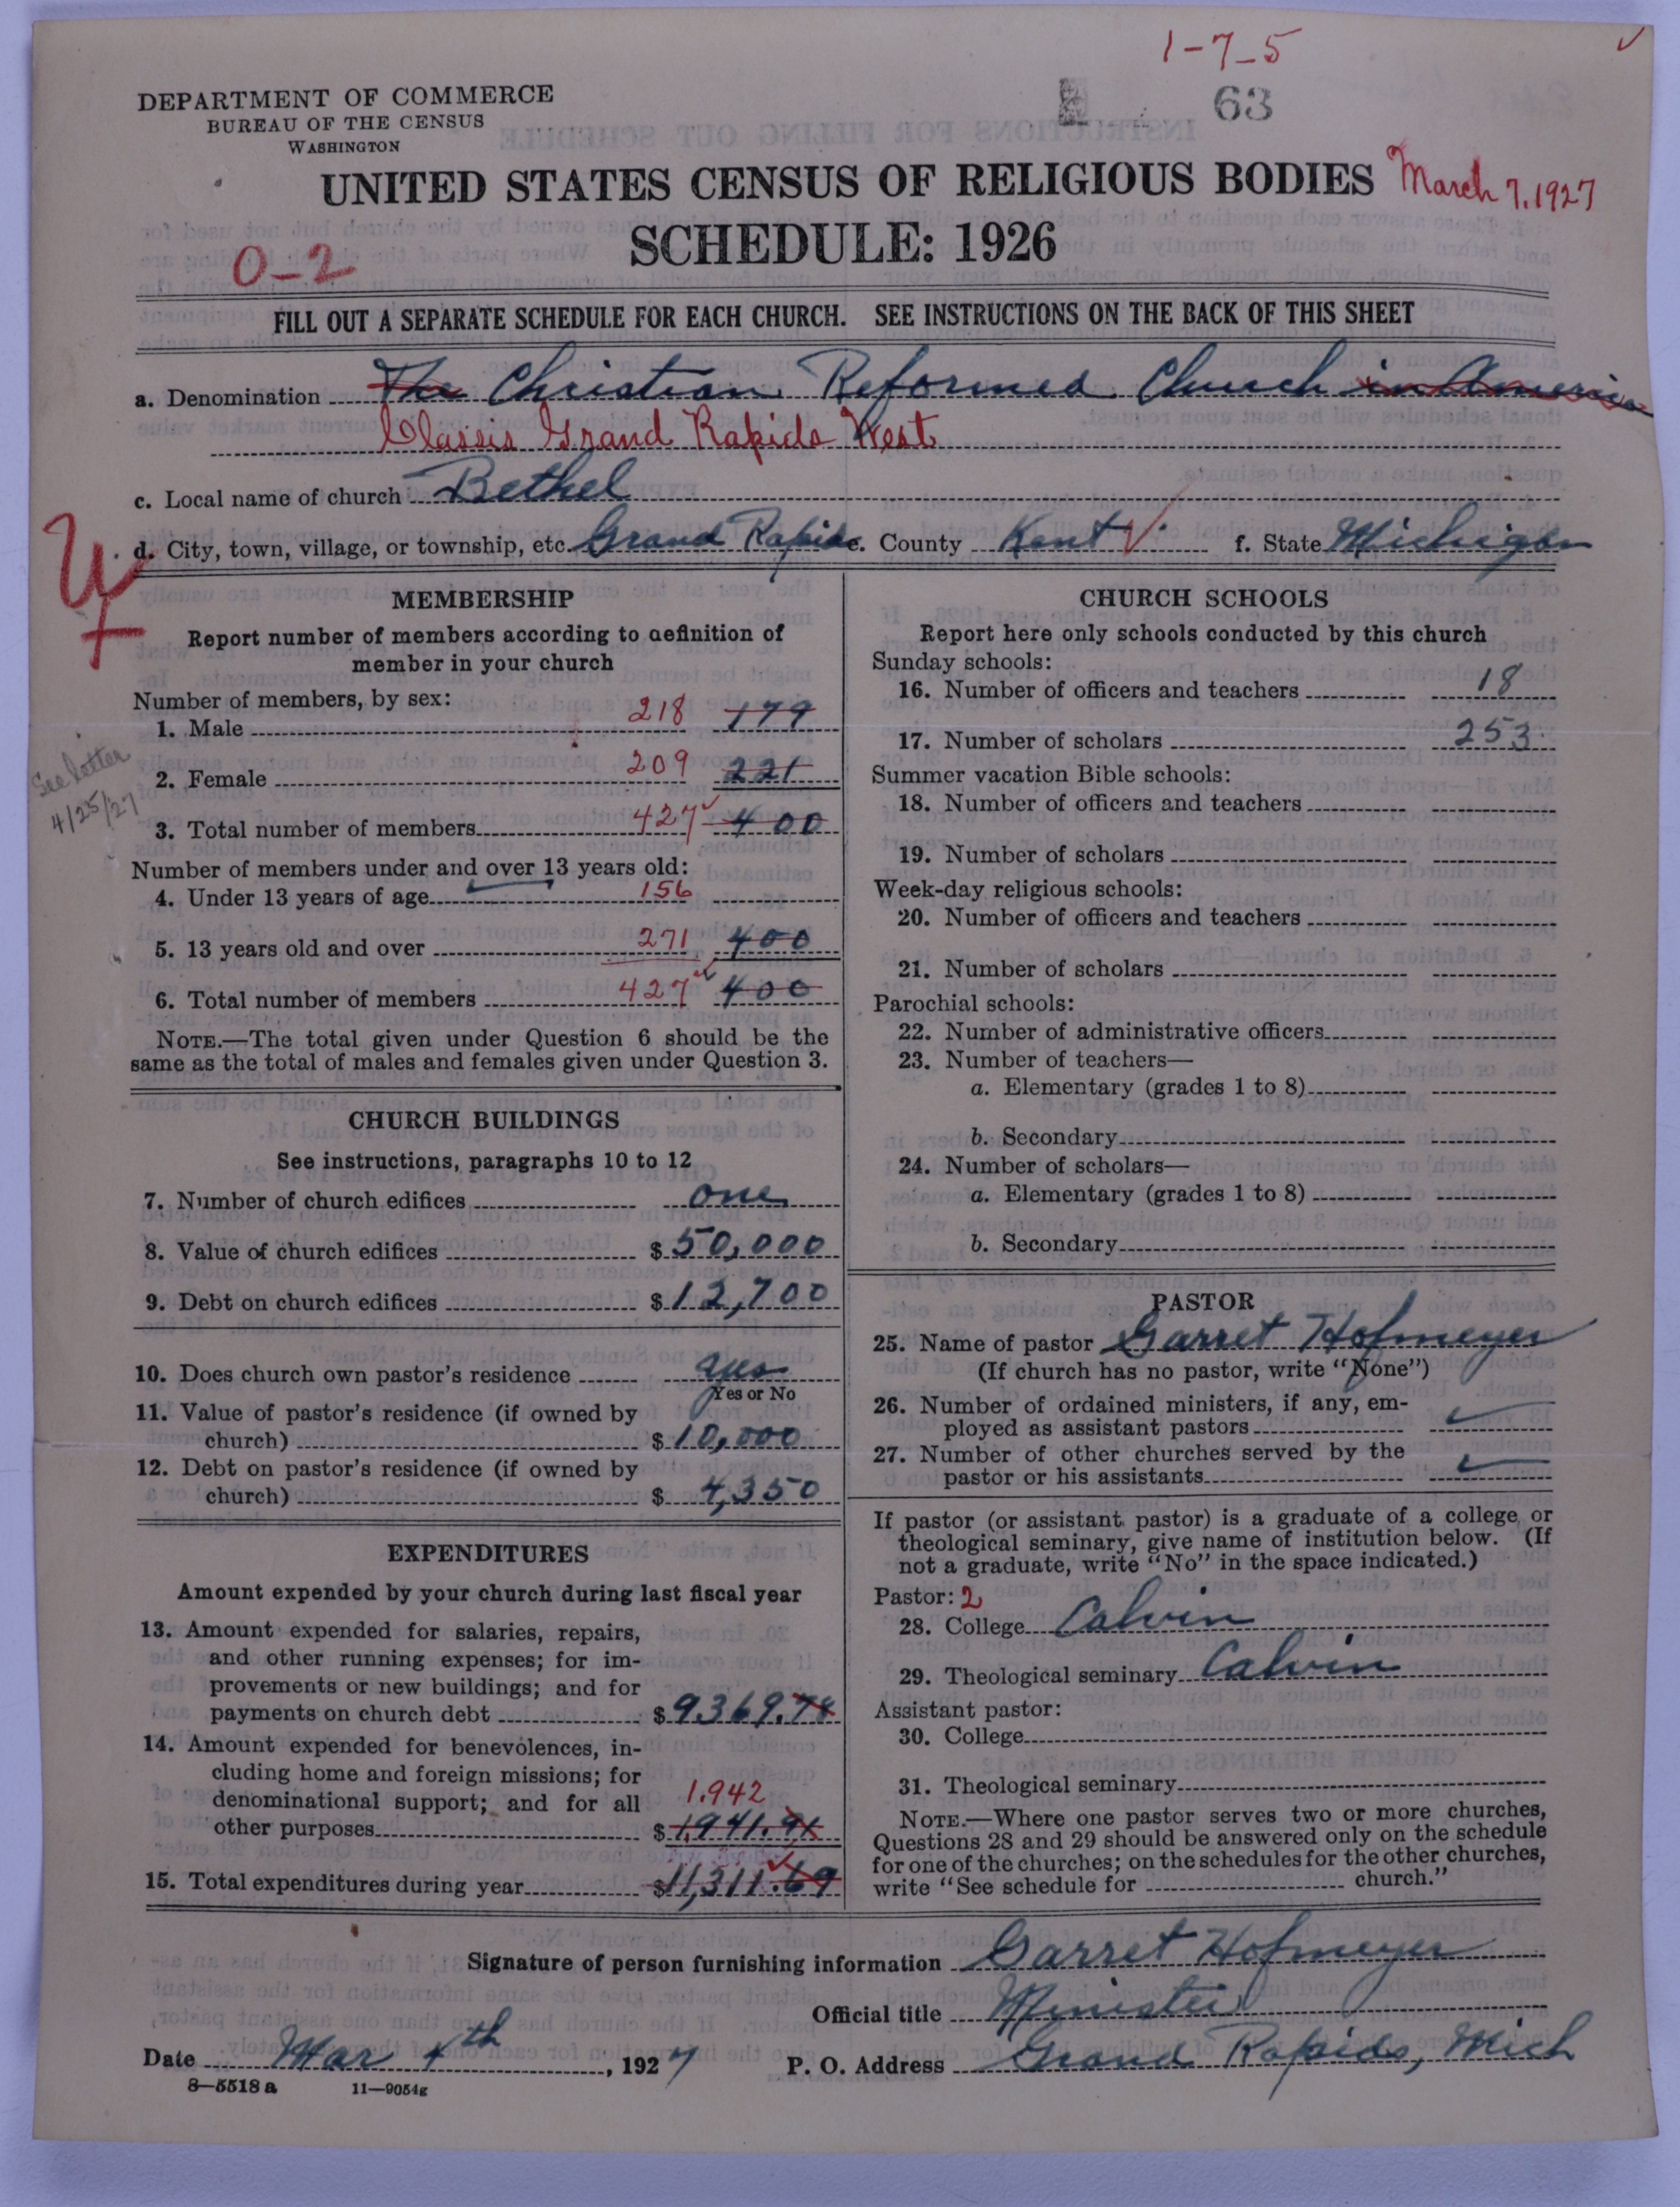 1-7-5
63
DEPARTMENT OF COMMERCE
BUREAU OF THE CENSUS
WASHINGTON
UNITED STATES CENSUS OF RELIGIOUS BODIES March 7, 1927
SCHEDULE: 1926
0-2
FILL OUT A SEPARATE SCHEDULE FOR EACH CHURCH. SEE INSTRUCTIONS ON THE BACK OF THIS SHEET
a. Denomination The Christian Reformed Church in America
Classis Grand Rapids West
c. Local name of church Bethel
d. City, town, village, or township, etc. Grand Rapids e. County Kent f. State Michigan
MEMBERSHIP
Report number of members according to definition of
member in your church
Number of members, by sex:
1. Male 218 179
2. Female 209 221
See letter
4/25/27
3. Total number of members 427 400
Number of members under and over 13 years old:
4. Under 13 years of age 156
5. 13 years old and over 271 400
6. Total number of members 427 400
NOTE.—The total given under Question 6 should be the
same as the total of males and females given under Question 3.
CHURCH BUILDINGS
See instructions, paragraphs 10 to 12
7. Number of church edifices one
8. Value of church edifices $50,000
9. Debt on church edifices $12,700
10. Does church own pastor's residence yes
Yes or No
11. Value of pastor's residence (if owned by
church) $10,000
12. Debt on pastor's residence (if owned by
church) $4,350
EXPENDITURES
Amount expended by your church during last fiscal year
13. Amount expended for salaries, repairs,
and other running expenses; for im-
provements or new buildings; and for
payments on church debt $9369.78
14. Amount expended for benevolences, in-
cluding home and foreign missions; for
denominational support; and for all 1,942
other purposes $1,941.91
15. Total expenditures during year $11,311.69
CHURCH SCHOOLS
Report here only schools conducted by this church
Sunday schools:
16. Number of officers and teachers 18
17. Number of scholars 253
Summer vacation Bible schools:
18. Number of officers and teachers
19. Number of scholars
Week-day religious schools:
20. Number of officers and teachers
21. Number of scholars
Parochial schools:
22. Number of administrative officers
23. Number of teachers—
a. Elementary (grades 1 to 8)
b. Secondary
24. Number of scholars—
a. Elementary (grades 1 to 8)
b. Secondary
PASTOR
25. Name of pastor Garret Hofmeyer
(If church has no pastor, write "None")
26. Number of ordained ministers, if any, em-
ployed as assistant pastors
27. Number of other churches served by the
pastor or his assistants
If pastor (or assistant pastor) is a graduate of a college or
theological seminary, give name of institution below. (If
not a graduate, write "No" in the space indicated.)
Pastor: 2
28. College Calvin
29. Theological seminary Calvin
Assistant pastor:
30. College
31. Theological seminary
NOTE.—Where one pastor serves two or more churches,
Questions 28 and 29 should be answered only on the schedule
for one of the churches; on the schedules for the other churches,
write "See schedule for church."
Signature of person furnishing information Garret Hofmeyer
Official title Minister
Date Mar 4th, 1927 P. O. Address Grand Rapids, Mich
8-5518 a 11-9054g